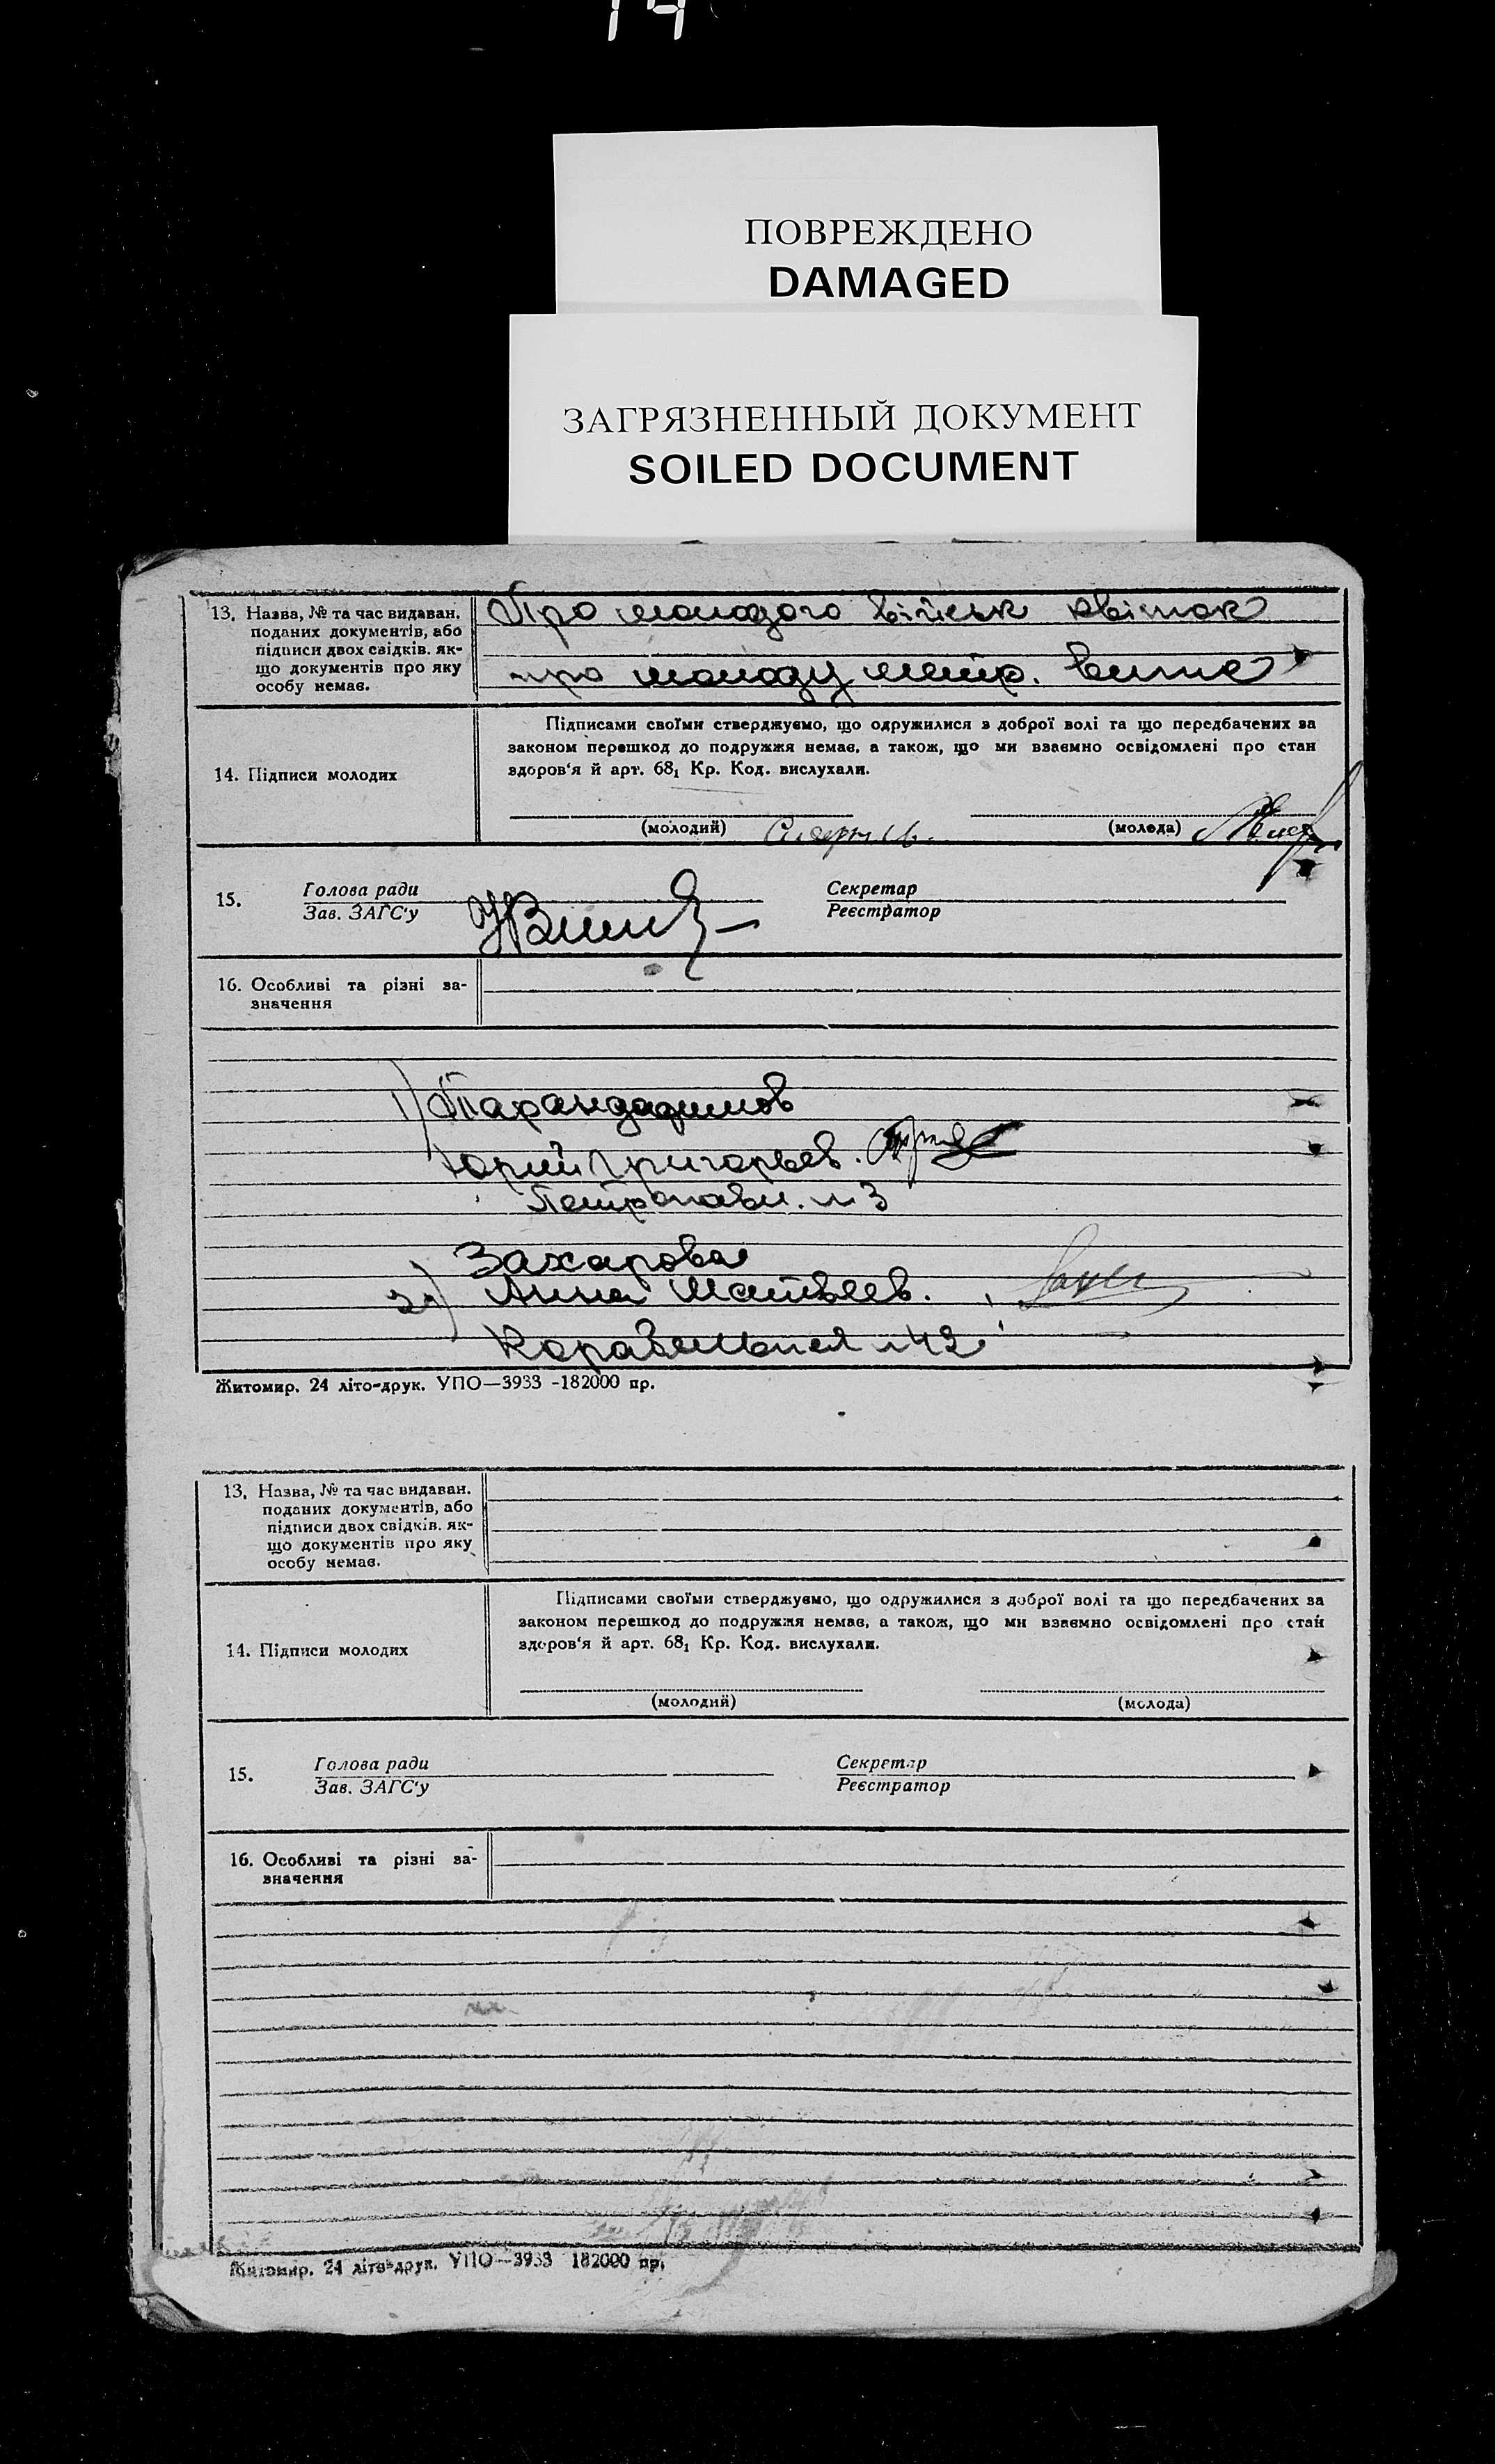 14
ПОВРЕЖДЕНО
DAMAGED
ЗАГРЯЗНЕННЫЙ ДОКУМЕНТ
SOILED DOCUMENT
13. Назва, № та час видаван.
поданих документів, або
підписи двох свідків, як-
що документів про яку
особу немає.
Про молодого військ квіток
про молоду метр. випис
14. Підписи молодих
Підписами своїми стверджуємо, що одружилися з доброї волі та що передбачених за
законом перешкод до подружжя немає, а також, що ми взаємно освідомлені про стан
здоров'я й арт. 68₁ Кр. Код. вислухали.
(молодий)
(молода)
15.
Голова ради
Зав. ЗАГС'у
Секретар
Реєстратор
16. Особливі та різні за-
значення
1)
Юрий Григорьев.
Петропавл. №3
Захарова
2) Анна Матвеев.
Корабельная №42
Житомир. 24 літо-друк. УПО—3933 -182000 пр.
13. Назва, № та час видаван.
поданих документів, або
підписи двох свідків. як-
що документів про яку
особу немає.
14. Підписи молодих
Підписами своїми стверджуємо, що одружилися з доброї волі та що передбачених за
законом перешкод до подружжя немає, а також, що ми взаємно освідомлені про стан
здоров'я й арт. 68₁ Кр. Код. вислухали.
(молодий)
(молода)
15.
Голова ради
Зав. ЗАГС'у
Секретар
Реєстратор
16. Особливі та різні за-
значення
Житомир. 24 літо-друк. УПО—3933 182000 пр.